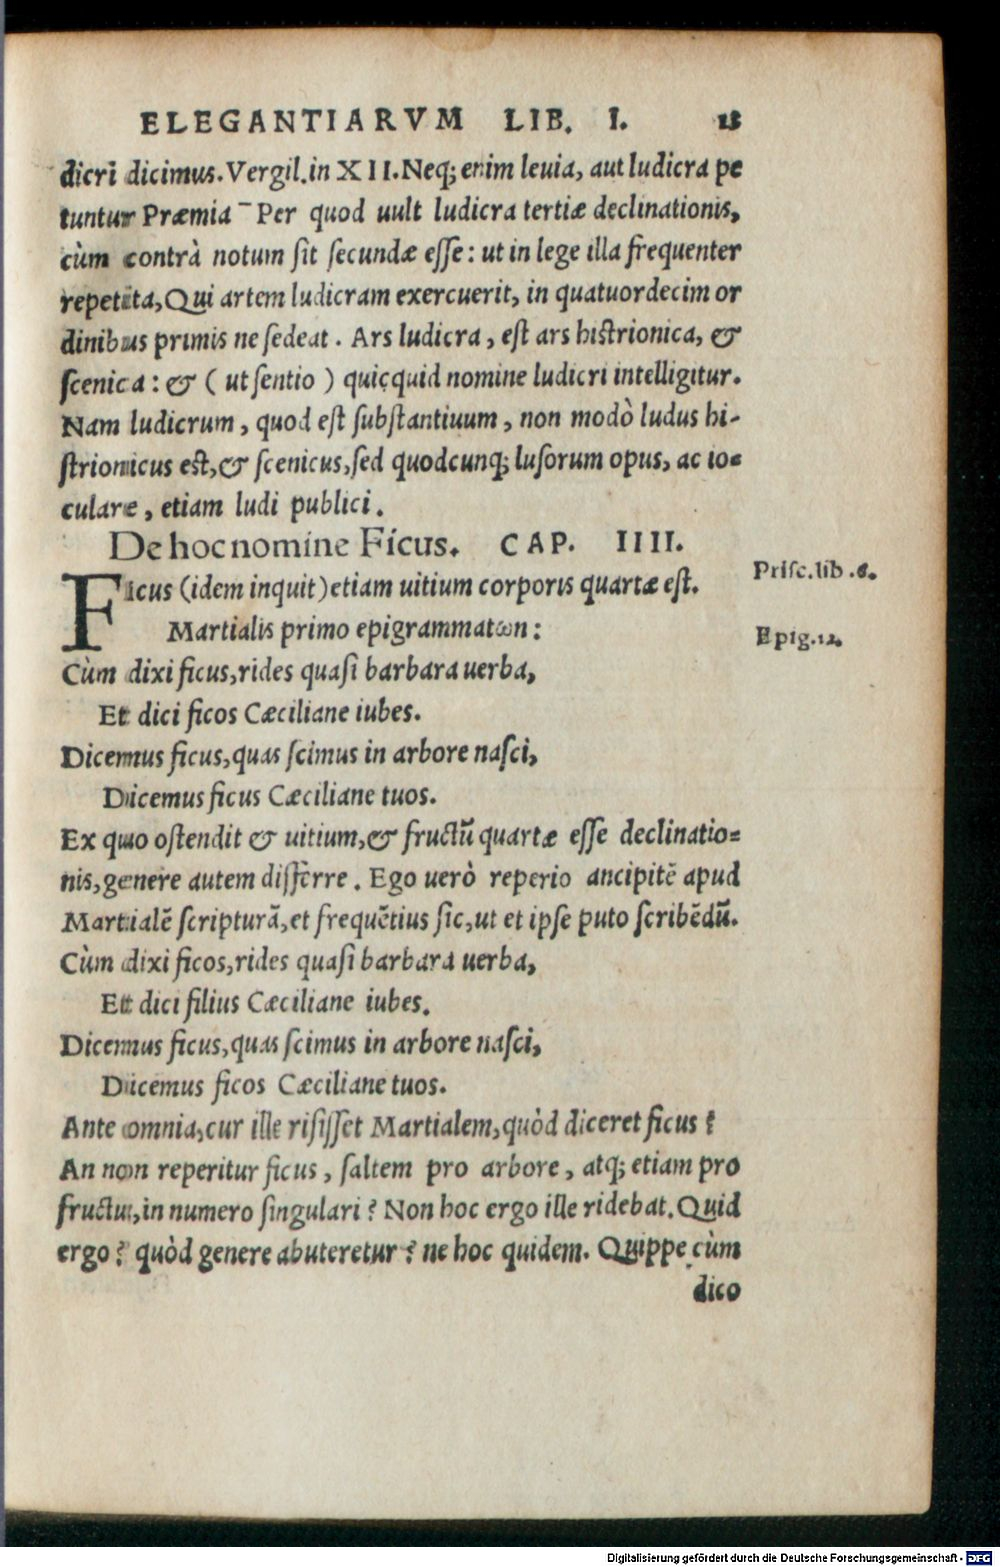 ELEGANTIARVM LIB. I. 13
dicri dicimus. Vergil. in XII. Neq; enim leuia, aut ludicra pe
tuntur Præmia – Per quod uult ludicra tertiæ declinationis,
cùm contrà notum sit secundæ esse: ut in lege illa frequenter
repetita, Qui artem ludicram exercuerit, in quatuordecim or
dinibus primis ne sedeat. Ars ludicra, est ars histrionica, &
scenica: & (ut sentio) quicquid nomine ludicri intelligitur.
Nam ludicrum, quod est substantiuum, non modò ludus hi-
strionicus est, & scenicus, sed quodcunq; lusorum opus, ac io=
culare, etiam ludi publici.
De hoc nomine Ficus. CAP. IIII.
Ficus (idem inquit) etiam uitium corporis quartæ est.
Prisc. lib. 6.
Martialis primo epigrammatωn:
Epig. 12.
Cùm dixi ficus, rides quasi barbara uerba,
Et dici ficos Cæciliane iubes.
Dicemus ficus, quas scimus in arbore nasci,
Dicemus ficus Cæciliane tuos.
Ex quo ostendit & uitium, & fructũ quartæ esse declinatio=
nis, genere autem differre. Ego uerò reperio ancipitẽ apud
Martialẽ scripturã, et frequẽtius sic, ut et ipse puto scribẽdũ.
Cùm dixi ficos, rides quasi barbara uerba,
Et dici filius Cæciliane iubes.
Dicemus ficus, quas scimus in arbore nasci,
Dicemus ficos Cæciliane tuos.
Ante omnia, cur ille risisset Martialem, quòd diceret ficus?
An non reperitur ficus, saltem pro arbore, atq; etiam pro
fructu, in numero singulari? Non hoc ergo ille ridebat. Quid
ergo? quòd genere abuteretur? ne hoc quidem. Quippe cùm
dico
Digitalisierung gefördert durch die Deutsche Forschungsgemeinschaft - DFG